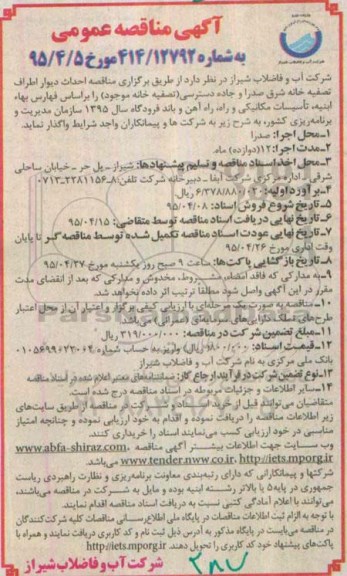 آگهی مناقصه عمومی
به شماره ۴۱۴/۱۲۷۹۲ مورخ ۹۵/۴/۵
شرکت آب و فاضلاب شیراز در نظر دارد از طریق برگزاری مناقصه احداث دیوار اطراف
تصفیه خانه شرق صدرا و جاده دسترسی(تصفیه خانه موجود) را براساس فهارس بهاء
ابنیه، تأسیسات مکانیکی و راه، راه آهن و باند فرودگاه سال ۱۳۹۵ سازمان مدیریت و
برنامه‌ریزی کشور، به شرح زیر به شرکت ها و پیمانکاران واجد شرایط واگذار نماید.
۱-محل اجرا: صدرا
۲-مدت اجرا: ۱۲(دوازده) ماه
۳-محل اخذ اسناد مناقصه و تسلیم پیشنهادها: شیراز-پل حر-خیابان ساحلی
شرقی-اداره مرکزی شرکت آبفا-دبیرخانه شرکت تلفن:
۴-برآورد اولیه: ریال
۵-تاریخ شروع فروش اسناد: ۹۵/۰۴/۰۸
۶-تاریخ نهایی دریافت اسناد مناقصه توسط متقاضی: ۹۵/۰۴/۱۵
۷-تاریخ نهایی عودت اسناد مناقصه تکمیل شده توسط مناقصه گر تا پایان
وقت اداری مورخ ۹۵/۰۴/۲۶
۸-تاریخ بازگشایی پاکت‌ها: ساعت ۹ صبح روز یکشنبه مورخ ۹۵/۰۴/۲۷
۹-به مدارکی که فاقد امضاء، مشروط، مخدوش و مدارکی که بعد از انقضای مدت
مقرر در این آگهی واصل شود مطلقاً ترتیب اثر داده نخواهد شد.
۱۰-مناقصه به صورت یک مرحله‌ای با ارزیابی کیفی برگزار و اعتبار آن از محل اعتبار
طرح‌های
۱۱-مبلغ تضمین شرکت در مناقصه: ۳۱۹/۰۰۰/۰۰۰ ریال
۱۲-قیمت اسناد: ریال واریز به حساب شماره
بانک ملی مرکزی به نام شرکت آب و فاضلاب شیراز
۱۳-نوع تضمین شرکت در فرآیند ارجاع کار: ضمانتنامه‌های معتبر اعلام شده در اسناد مناقصه
۱۴-سایر اطلاعات و جزئیات مربوطه در اسناد مناقصه درج شده است.
متقاضیان می‌توانند قبل از خرید اسناد و شرکت در مناقصه، از طریق سایت‌های
زیر اطلاعات مناقصه را دریافت نموده و اقدام به خود ارزیابی نموده و چنانچه امتیاز
مناسبی در خود ارزیابی کسب می‌نمایند اسناد را خریداری کنند.
وب سایت جهت اطلاعات بیشتر آگهی مناقصه www.abfa-shiraz.com،
http://iets.mporg.ir ،www.tender.nww.co.ir می‌باشد.
شرکتها و پیمانکارانی که دارای رتبه‌بندی معاونت برنامه‌ریزی و نظارت راهبردی ریاست
جمهوری در پایه۵ یا بالاتر رشته ابنیه بوده و مایل به شرکت در مناقصه می‌باشند،
می‌توانند با اعلام آمادگی کتبی نسبت به دریافت اسناد مناقصه اقدام نمایند.
با توجه به الزام ثبت اطلاعات مناقصات در پایگاه ملی اطلاع‌رسانی مناقصات کلیه شرکت‌کنندگان
در مناقصه می‌بایست در پایگاه مذکور به آدرس ذیل ثبت نام و کد کاربری دریافت نمایند و همراه با
پاکت‌های پیشنهاد خود کد کاربری را تحویل دهند. http//iets.mporg.ir
شرکت آب و فاضلاب شیراز